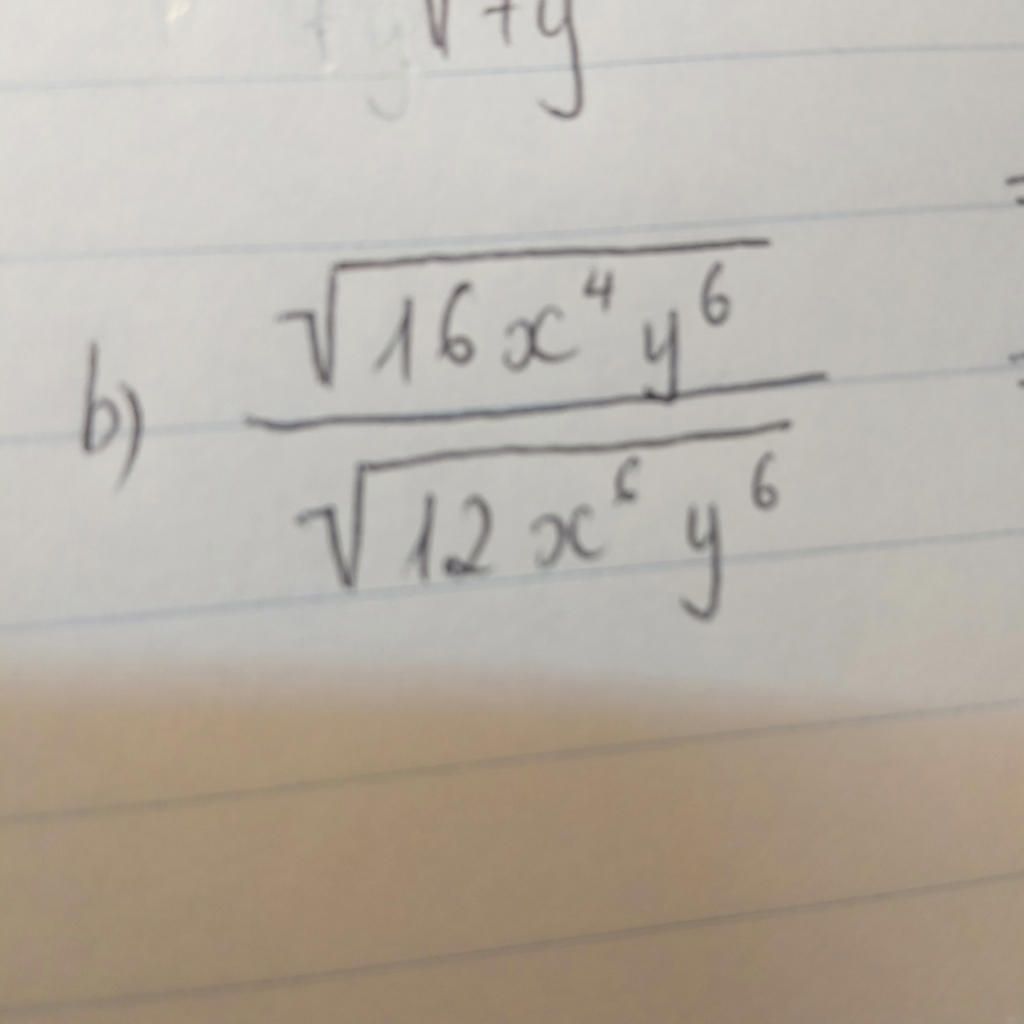 √+y
=
b) √(16x⁴y⁶) / √(12x⁶y⁶)